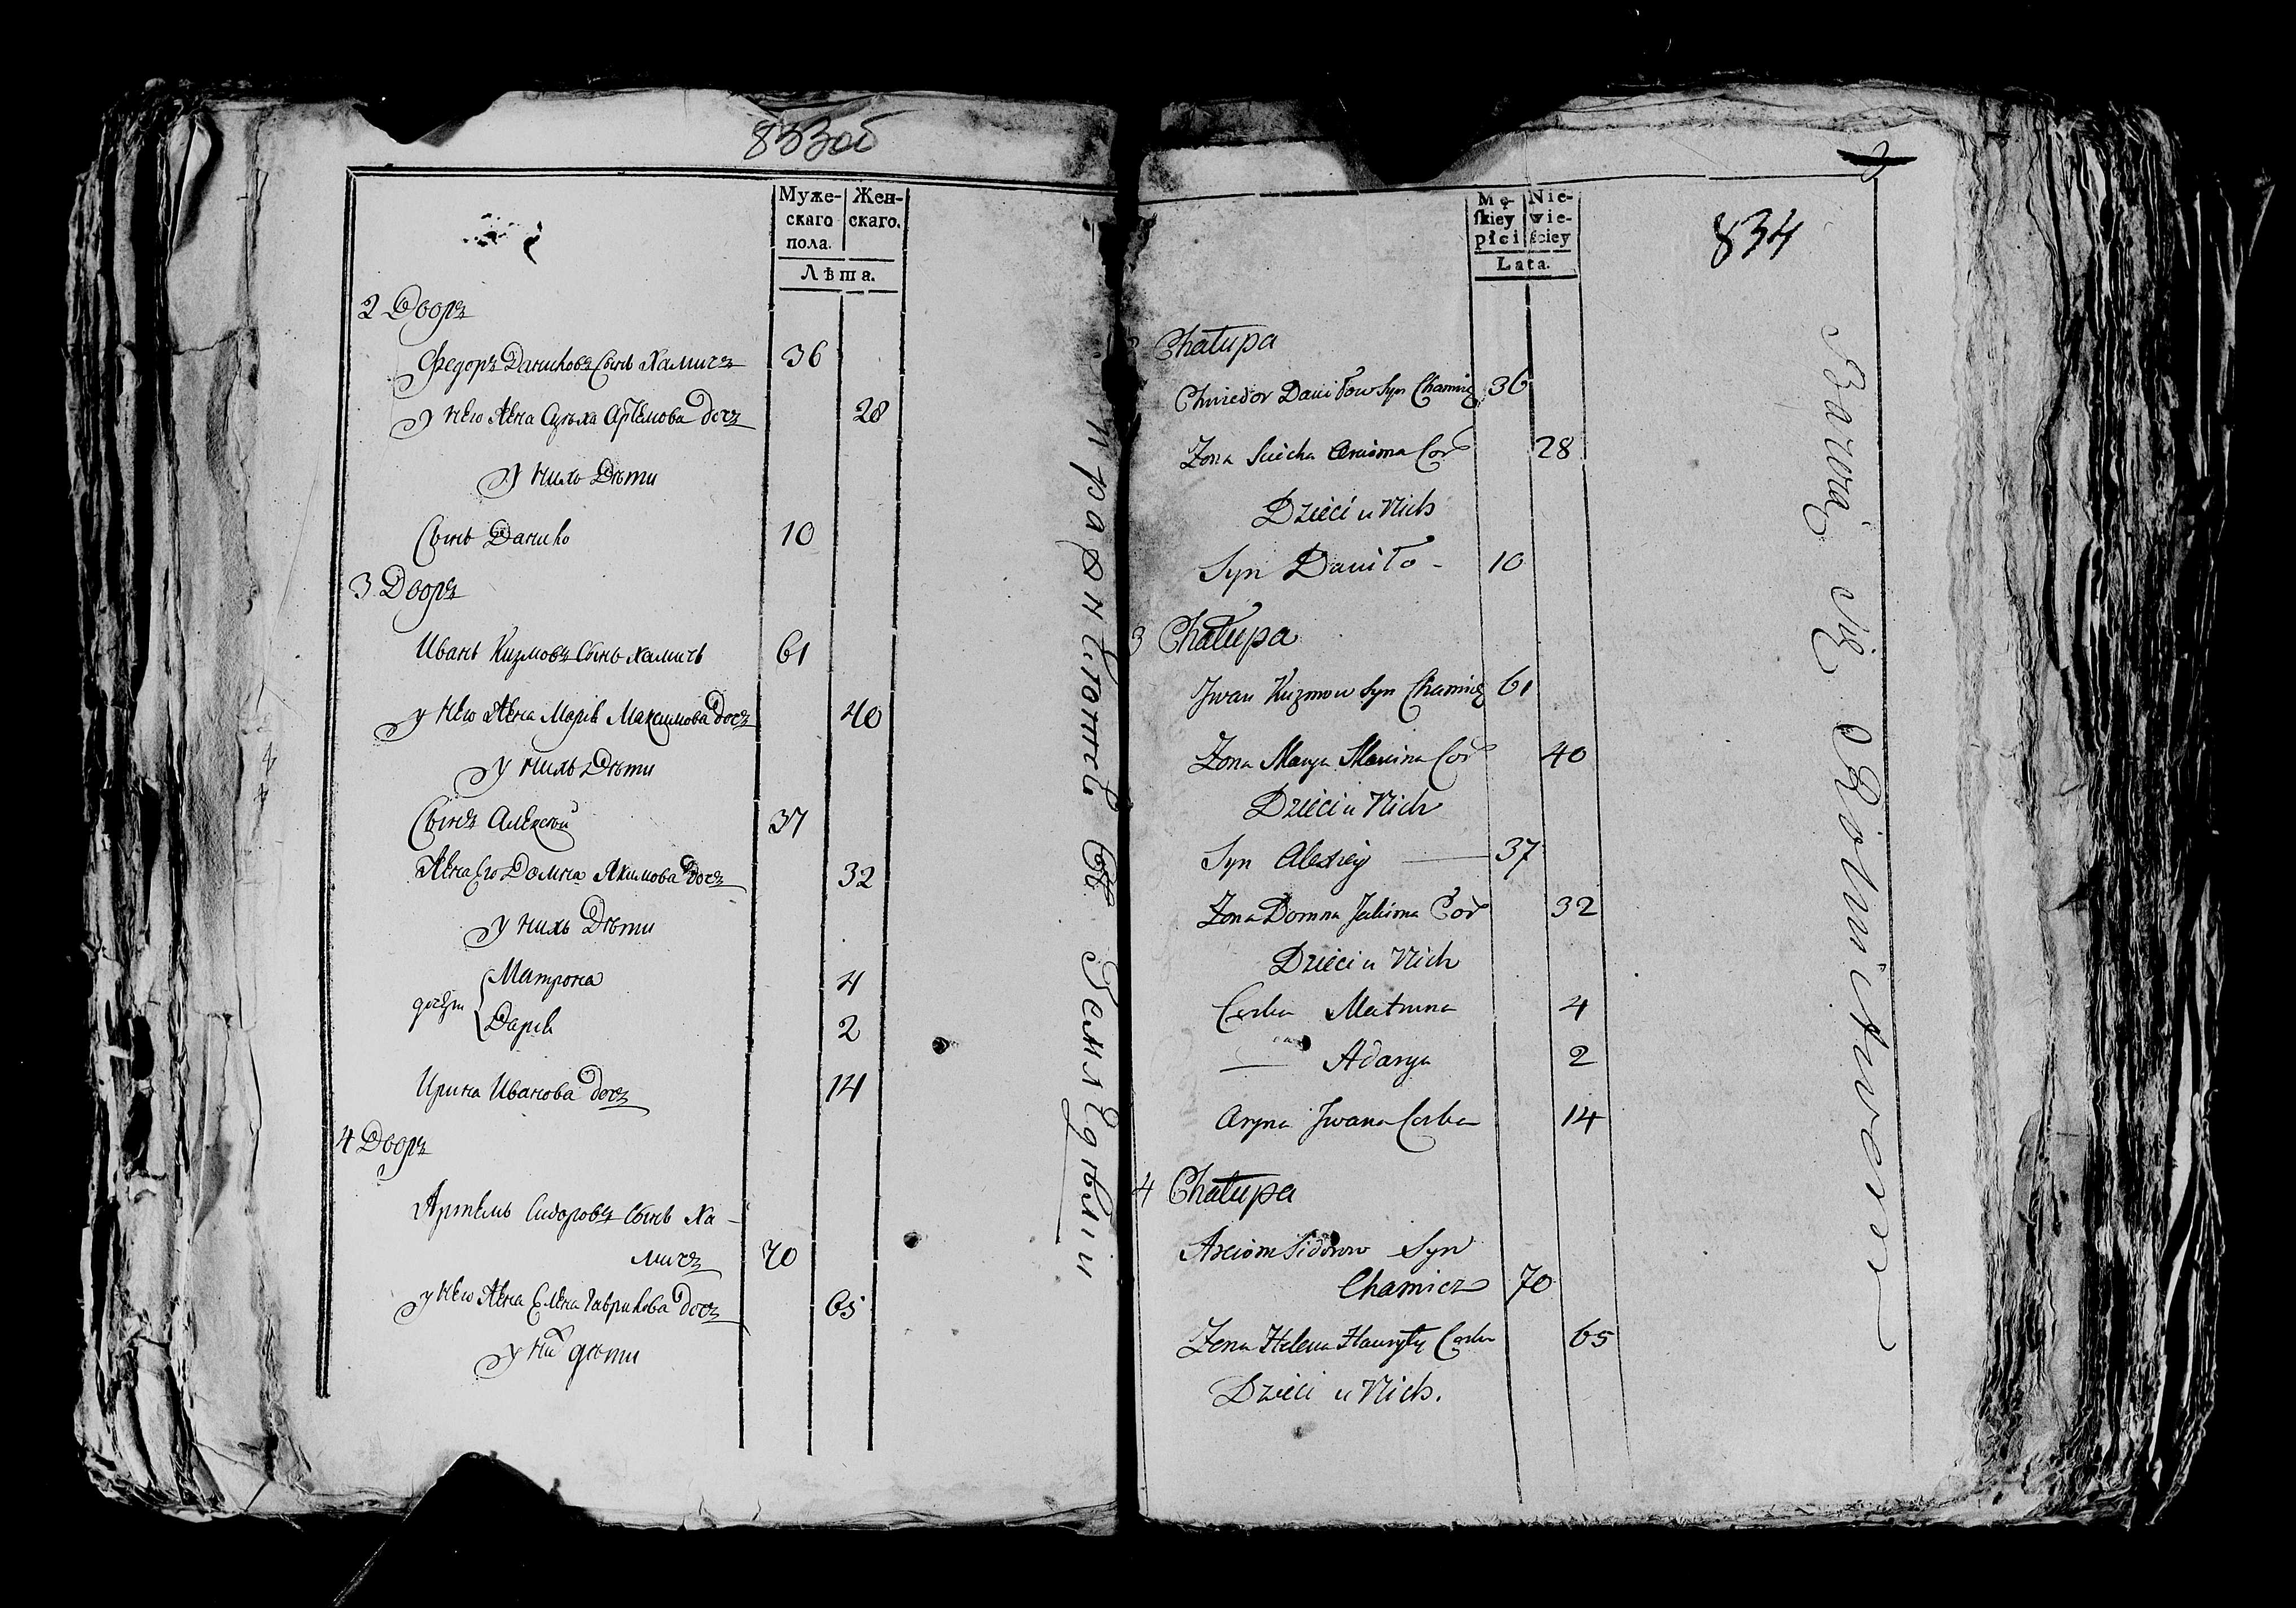 833об
Муже-
скаго
пола.
Жен-
скаго.
Лѣта.
2 Дворъ
Федоръ Даниловъ Сынъ Хамичъ 36
У него Жена Суклха Артемова дочъ 28
У нихъ Дѣти
Сынъ Данило 10
3 Дворъ
Иванъ Кузмовъ Сынъ Хамичъ 61
У него Жена Марія Максимова дочъ 40
У нихъ Дѣти
Сынъ Алексѣй 37
Жена Его Домна Якимова дочъ 32
У нихъ Дѣти
дочери Матрона 4
Дарія 2
Ирина Иванова дочъ 14
4 Дворъ
Артемъ Сидоровъ Сынъ Ха-
мичъ 70
У него Жена Елена Гаврилова дочъ 65
У них дѣти
Графинею
834
Mę-
ſkiey
płci
Nie-
wie-
ściey
Lata.
Chałupa
Chwiedor Daniłow Syn Chamicz 36
Zona Arcioma Cor 28
Dzieci u Nich
Syn Daniło - 10
3 Chałupa
Jwan Kuzmow Syn Chamicz 61
Zona Marya Maxima Cor 40
Dzieci u Nich
Syn Alexiey 37
Zona Domna Jakima Cor 32
Dzieci u Nich
Corka Matruna 4
Adarya 2
Aryna Jwana Corka 14
4 Chałupa
Arciom Sidorow Syn
Chamicz 70
Zona Helena Hawryły Corka 65
Dzieci u Nich.